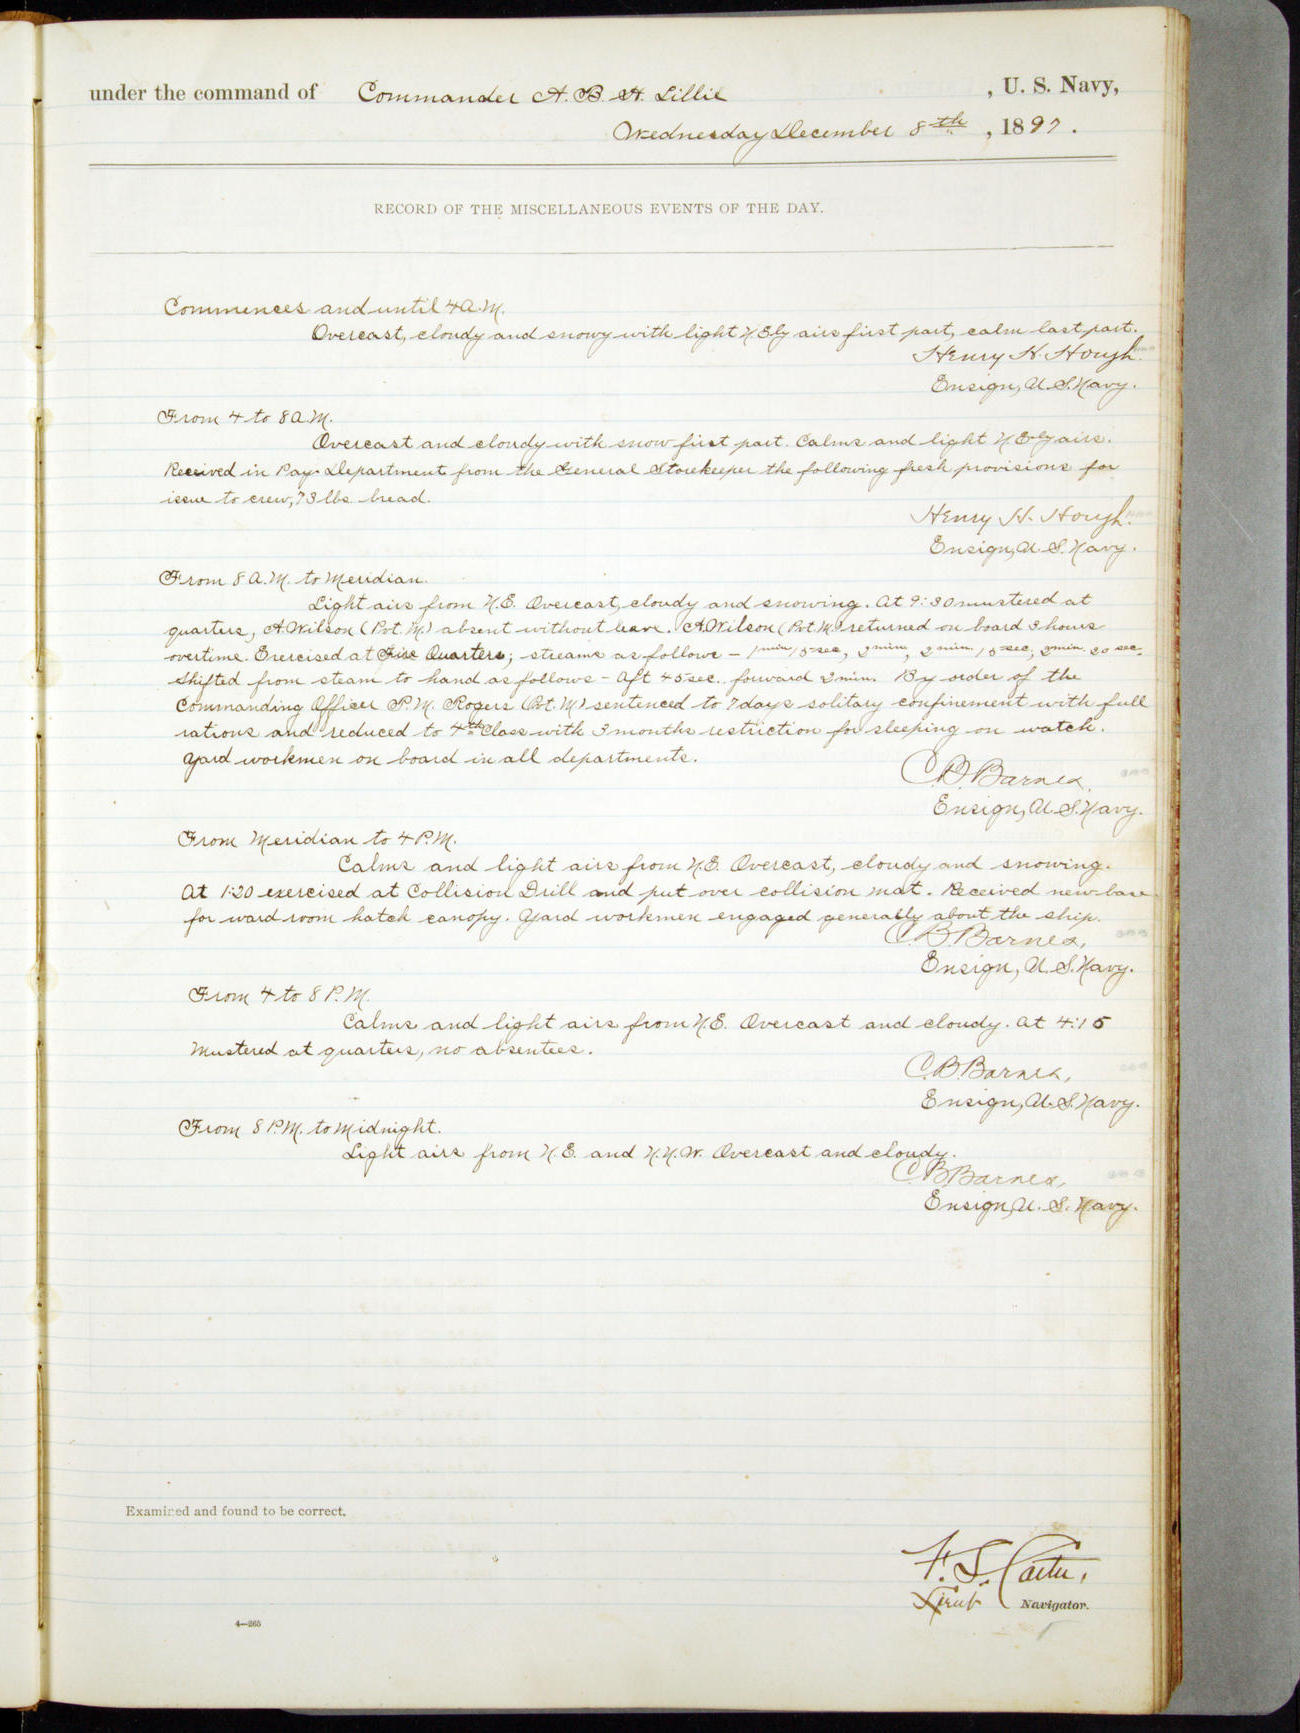 under the command of Commander A. B. H. Lillie , U. S. Navy,
Wednesday December 8th , 1897 .
RECORD OF THE MISCELLANEOUS EVENTS OF THE DAY.
Commences and until 4 A.M.
Overcast, cloudy and snowy with light N.E'ly airs first part, calm last part.
Henry H. Hough.
Ensign, U.S. Navy.
From 4 to 8 A.M.
Overcast and cloudy with snow first part. Calms and light N.E'ly airs.
Received in Pay Department from the General Storekeeper the following fresh provisions for
issue to crew, 73 lbs. bread.
Henry H. Hough.
Ensign, U.S. Navy.
From 8 A.M. to Meridian.
Light airs from N.E. Overcast, cloudy and snowing. At 9:30 mustered at
quarters, A. Wilson (Pvt. M.) absent without leave. A. Wilson (Pvt. M.) returned on board 3 hours
overtime. Exercised at Fire Quarters; streams as follows – 1 min 15 sec, 2 min, 2 min. 15 sec, 2 min. 20 sec.
Shifted from steam to hand as follows – Aft 45 sec. forward 2 min. By order of the
Commanding Officer P.M. Rogers (Pvt. M.) sentenced to 7 days solitary confinement with full
rations and reduced to 4th Class with 3 months restriction for sleeping on watch.
Yard workmen on board in all departments.
C.B. Barnes,
Ensign, U.S. Navy.
From Meridian to 4 P.M.
Calms and light airs from N.E. Overcast, cloudy and snowing.
At 1:20 exercised at Collision Drill and put over collision mat. Received new base
for ward room hatch canopy. Yard workmen engaged generally about the ship.
C.B. Barnes,
Ensign, U.S. Navy.
From 4 to 8 P.M.
Calms and light airs from N.E. Overcast and cloudy. At 4:15
Mustered at quarters, no absentees.
C.B. Barnes,
Ensign, U.S. Navy.
From 8 P.M. to Midnight.
Light airs from N.E. and N.N.W. Overcast and cloudy.
C.B. Barnes,
Ensign, U.S. Navy.
Examined and found to be correct.
F. S. Carter,
Lieut Navigator.
4—265